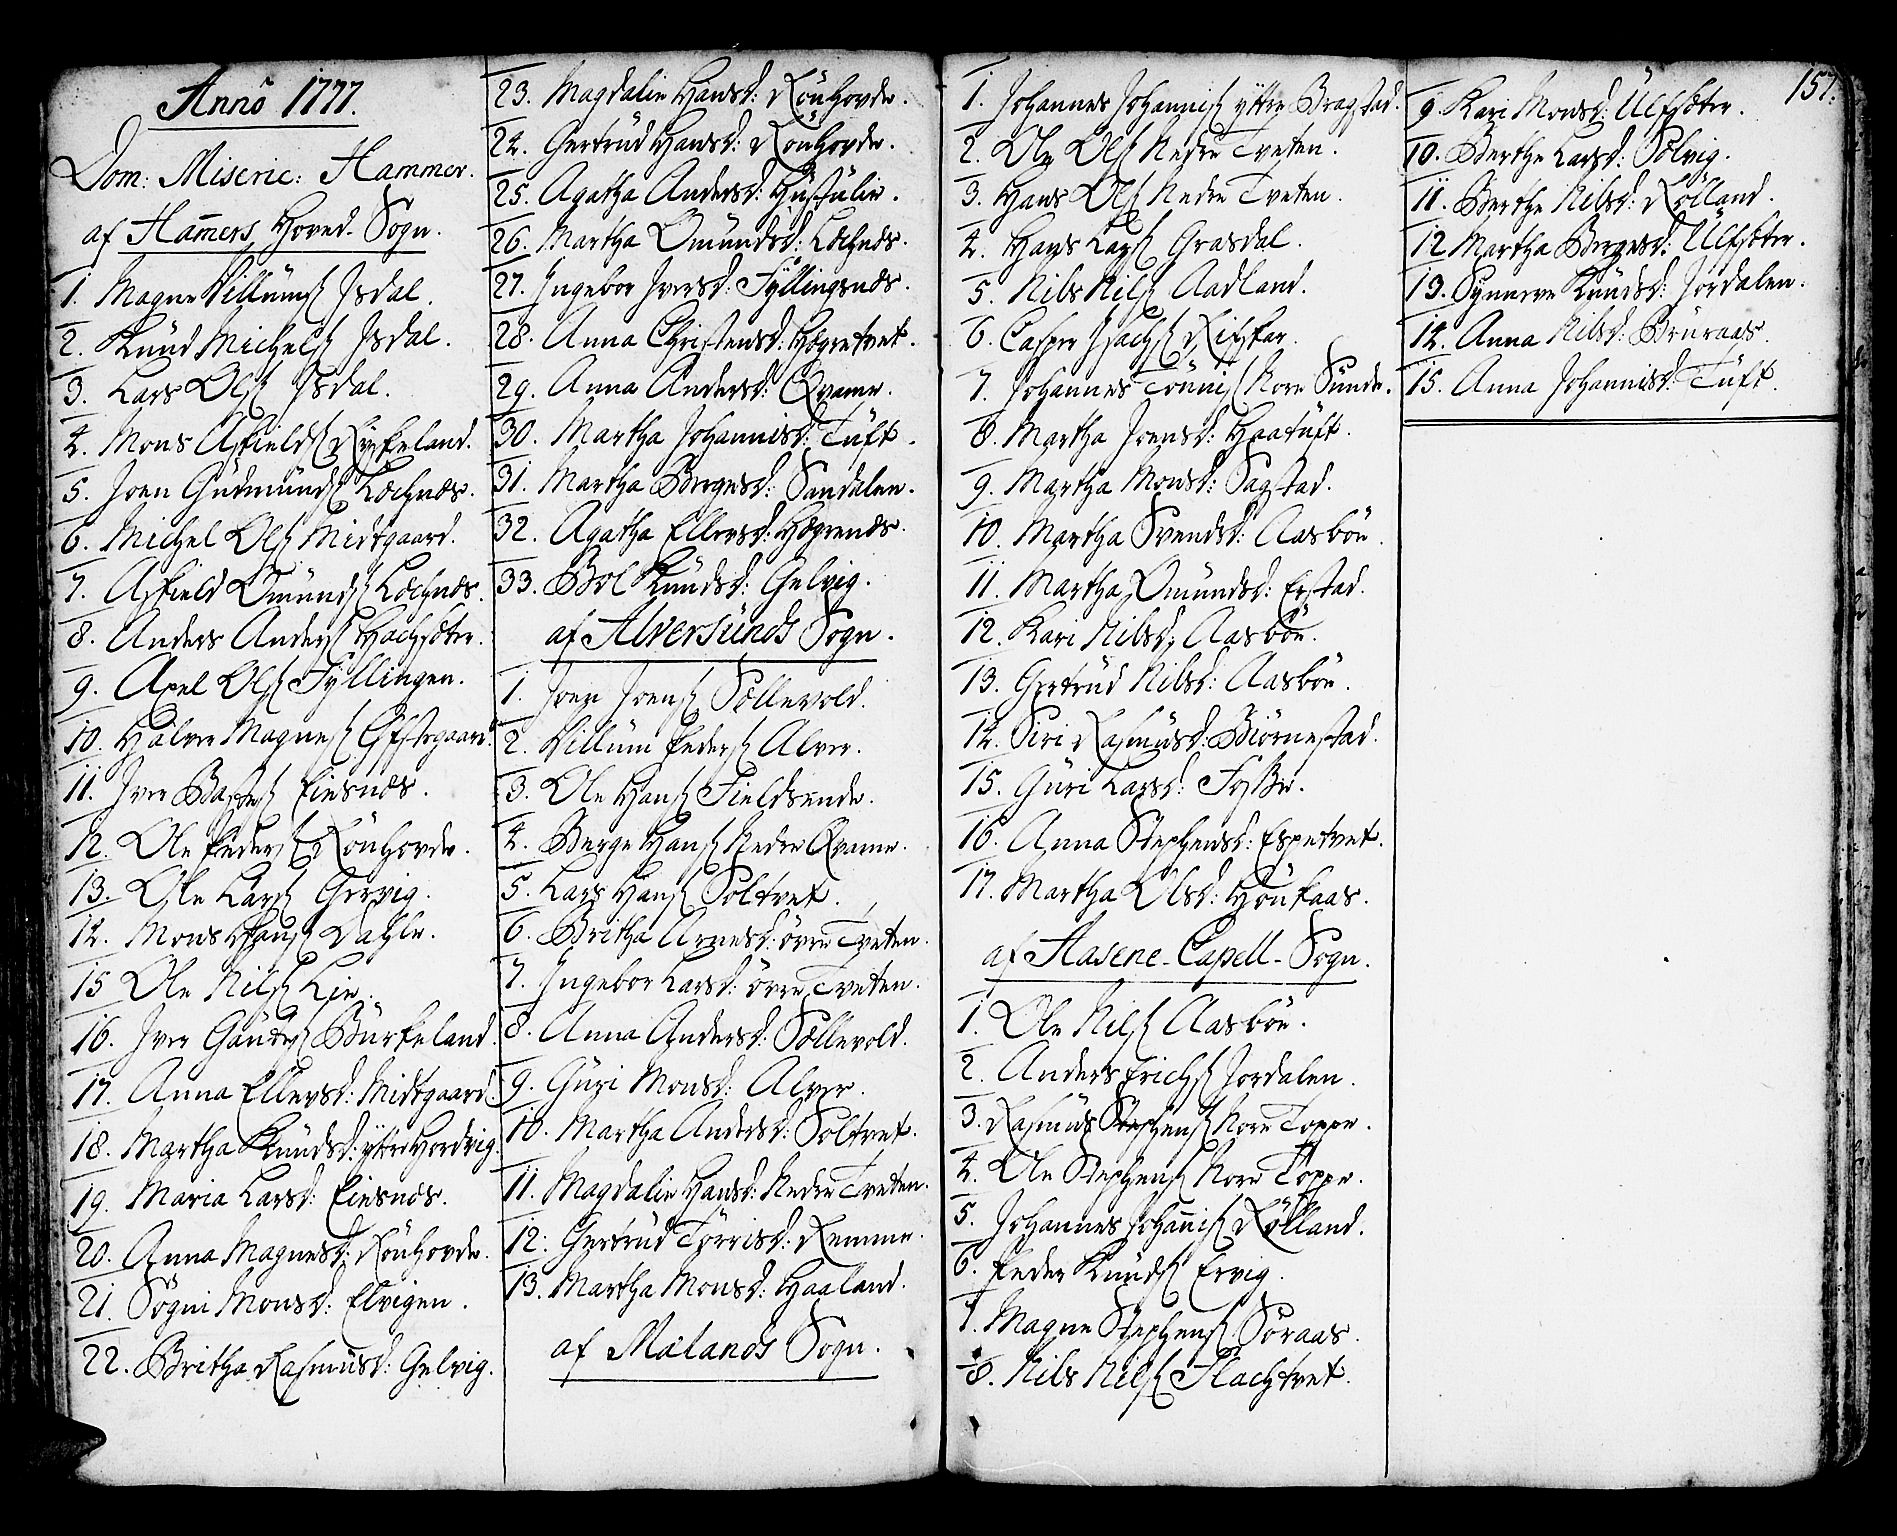 Anno 1777.
Dom: Miseric: Hammer.
af Ham̄ers Hoved-Sogn.
1. Magne Villums: Isdal.
2. Knud Michels: Isdal.
3. Lars Ols: Isdal.
4. Mons Asfields: Ryskeland.
5. Joen Gudmunds: Lochnæs.
6. Michel Ols: Midtgaard.
7. Asfield Omunds: Lochnæs.
8. Anders Anders: Hachsæter.
9. Axel Ols: Fyllingen.
10. Halver Magnes: Efstegaard.
11. Iver Eiesnæs.
12. Ole Peders: Rönhovde.
13. Ole Lars: Gervig.
14. Mons Hans: Dahle.
15 Ole Nils: Lie.
16. Iver Gautes: Burkeland.
17. Anna Ellersd: Midtgaard.
18. Martha Knudsd: yttre Hordvig.
19. Maria Larsd: Eiesnæs.
20. Anna Magnesd: Rönhovde.
21. Sögni Monsd: Elvigen.
22. Britha Rasmusd: Gelvig.
23. Magdalie Hansd: Rönhovde.
24. Gertrud Hansd: Rönhovde.
25. Agatha Andersd: Hustulie.
26. Martha Omundsd: Lochnæs.
27. Ingebor Iversd: Fyllingsnæs.
28. Anna Christensd: Hægretvet.
29. Anna Andersd: Qvame.
30. Martha Johannisd: Tuft.
31. Martha Bergesd: Sandalen.
32. Agatha Ellersd: Hægrenæs.
33. Bol Knudsd: Gelvig.
af Alversunds Sogn.
1. Joen Joens: Sællevold.
2. Villum Peders: Alver.
3. Ole Hans: Fieldsende.
4. Berge Hans: Nedre Qvame.
5. Lars Hans: Soltvet.
6. Britha Arnesd: övre Tveten.
7. Ingebor Larsd: övre Tveten.
8. Anna Andersd: Sællevold.
9. Guri Monsd: Alver.
10. Martha Andersd: Soltvet.
11. Magdalie Hansd: Nedre Tveten.
12. Gertrud Törrisd: Remme.
13. Martha Monsd: Haaland.
af Mælands Sogn.
157.
1. Johannes Johannis: yttre Bragstad.
2. Ole Ols: Nedre Tveten.
3. Hans Ols: Nedre Tveten.
4. Hans Lars: Grasdal.
5. Nils Nils: Aadland.
6. Casper Isachs: Rifskar.
7. Johannes Tönnis: Nore Sunde.
8. Martha Joensd: Haatuft.
9. Martha Monsd: Sagstad.
10. Martha Svendsd: Aasböe.
11. Martha Omundsd: Erstad.
12. Kari Nilsd: Aasböe.
13. Gertrud Nilsd: Aasböe.
14. Siri Rasmusd: Biörnestad.
15. Guri Larsd: Fosse.
16. Anna Stephensd: Espetvet.
17. Martha Olsd: Höukaas.
af Aasene-Capell-Sogn.
1. Ole Nils: Aasböe.
2. Anders Erichs: Jordalen.
3. Rasmus Stephens: Nore Toppe.
4. Ole Stephens: Nore Toppe.
5. Johannes Johan̄is: Rölland.
6. Peder Knuds: Ervig.
7. Magne Stephens: Soraas.
8. Nils Nils: Flachtvet.
9. Kari Monsd: Ulfsæter.
10. Berthe Larsd: Solvig.
11. Berthe Nilsd: Rölland.
12 Martha Bergesd: Ulfsæter.
13. Synneve Knudsd: Jordalen.
14. Anna Nilsd: Bruraas.
15. Anna Johannisd: Tuft.